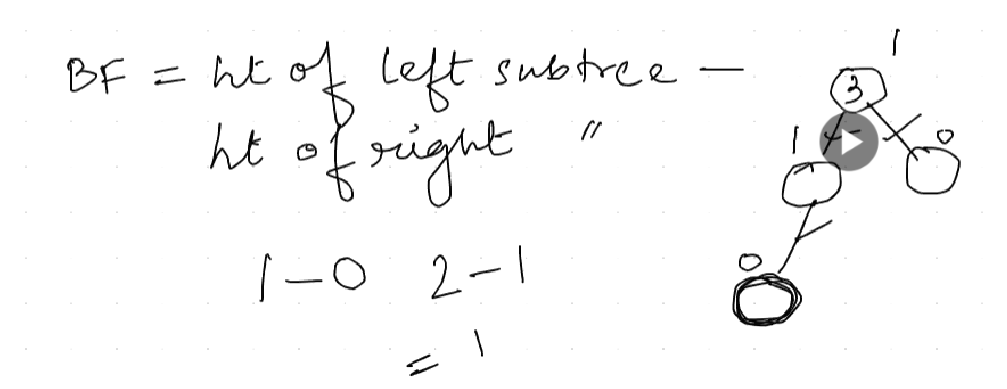 BF = ht of left subtree -
ht of right "
1-0 2-1
= 1
1
3
1
0
0